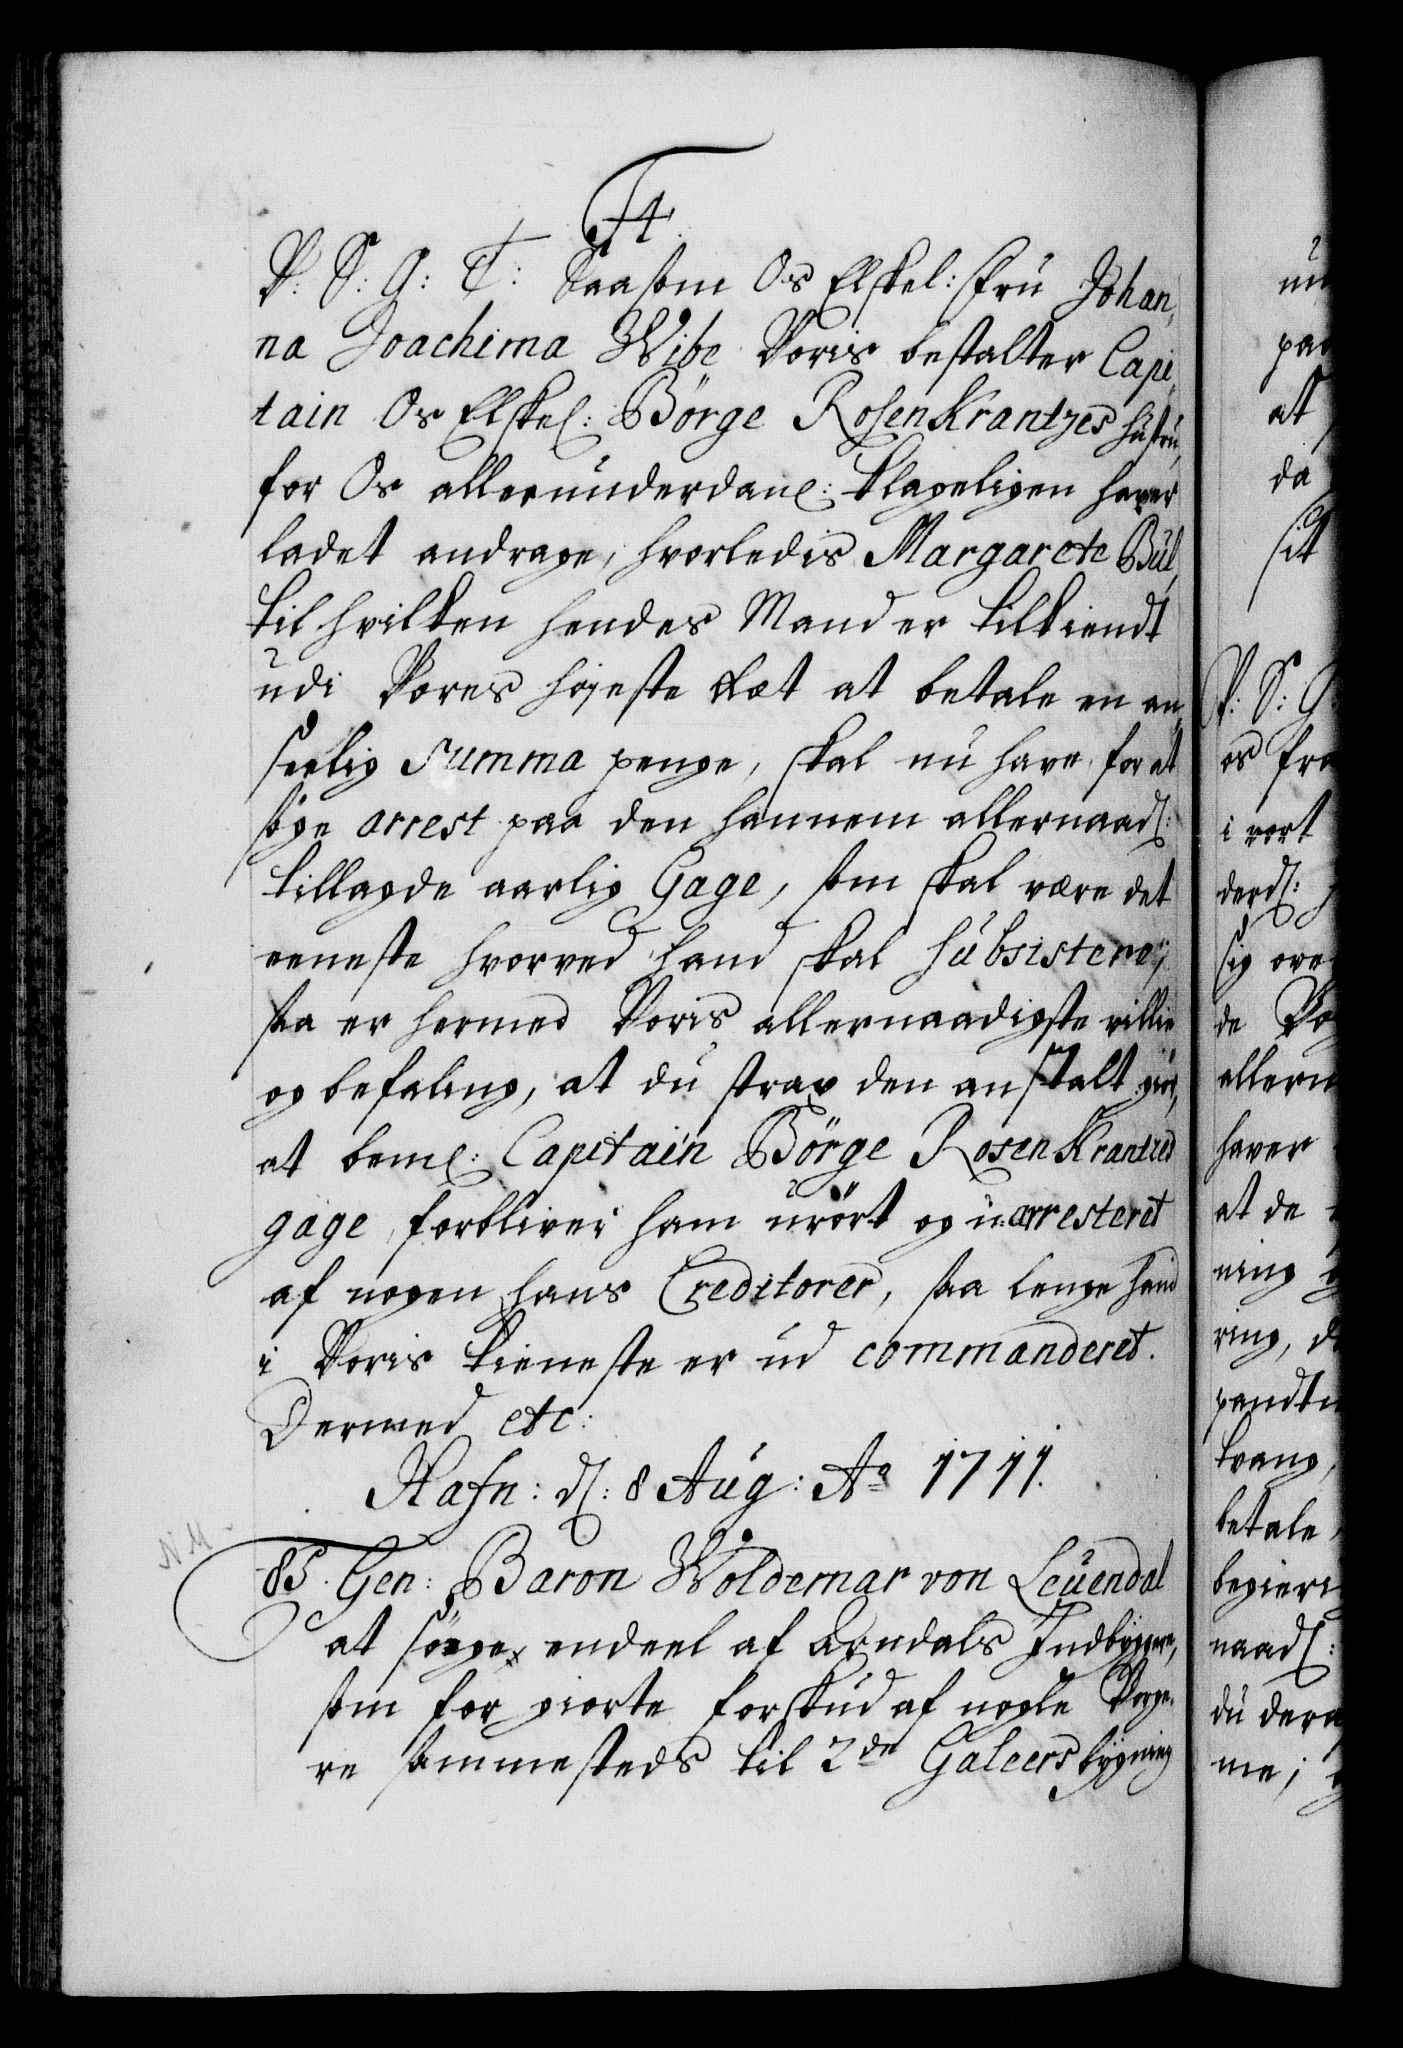 F4.
V: S: G: T: Saasom Os Elskel: Fru Johan,
na Joachima Wibe Voris bestalter Capi,
tain Os Elskel: Börge Rosenkrantzes hustru,
for Os allerunderdanl: klageligen haver
ladet andrage, hvorledis Margarete Bül,
til hvilken hendes Mand er tilkiendt
udi Vores høieste Ræt at betale en an,
seelig summa penge, skal nu have for at
søge arrest paa den hannem allernaadl:
tillagde aarlig Gage, som skal være det
eeneste hvorved hand skal subsistere;
saa er hermed Voris allernaadigste villie
og befaling, at du strax den anstalt giør,
at bemel: Capitain Börge Rosenkrantzes
gage, forbliver ham urört og u-arresteret
af nogen hans Creditorer, saa lenge hand
i Voris tieneste er ud commanderet.
Dermed etc:
Hafn: d: 8 Aug: Ao 1711.
N.M.
85. Gen: Baron Woldemar von Leuendal
at søge endeel af Arndals Indbyggere,
som for giorte forskud af nogle Borge,
re sammesteds til 2de Galeers bygning